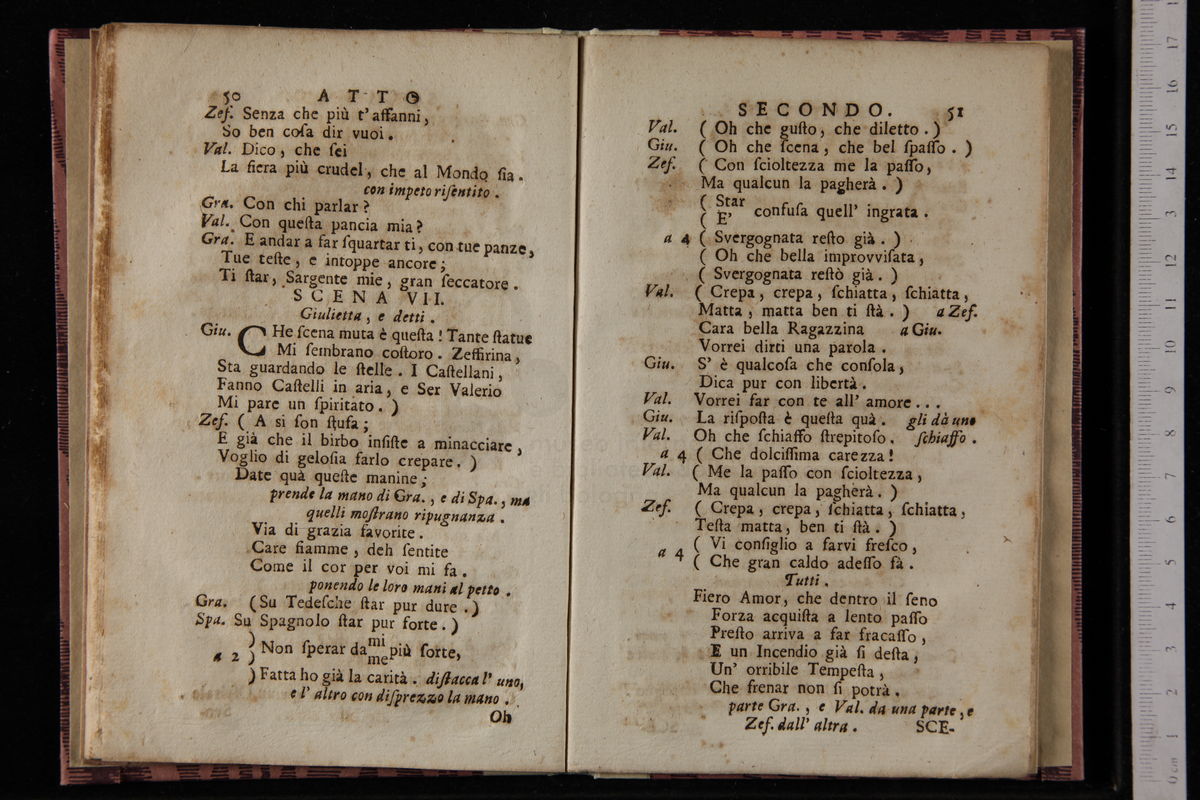 50 ATTO
Zef. Senza che più t'affanni,
So ben coſa dir vuoi.
Val. Dico, che ſei
La fiera più crudel, che al Mondo ſia.
con impeto riſentito.
Gra. Con chi parlar?
Val. Con queſta pancia mia?
Gra. E andar a far ſquartar ti, con tue panze,
Tue teſte, e intoppe ancore;
Ti ſtar, Sargente mie, gran ſeccatore.
SCENA VII.
Giulietta, e detti.
Giu. CHe ſcena muta è queſta! Tante ſtatue
Mi ſembrano coſtoro. Zeffirina,
Sta guardando le ſtelle. I Caſtellani,
Fanno Caſtelli in aria, e Ser Valerio
Mi pare un ſpiritato. )
Zef. ( A si ſon ſtufa;
E già che il birbo inſiſte a minacciare,
Voglio di geloſia farlo crepare. )
Date quà queſte manine;
prende la mano di Gra., e di Spa., ma
quelli moſtrano ripugnanza.
Via di grazia favorite.
Care fiamme, deh ſentite
Come il cor per voi mi fa.
ponendo le loro mani al petto.
Gra. (Su Tedeſche ſtar pur dure.)
Spa. Su Spagnolo ſtar pur forte.)
a 2 ) Non ſperar da mi me più ſorte,
) Fatta ho già la carità. diſtacca l'uno,
e l'altro con diſprezzo la mano.
Oh
SECONDO. 51
Val. ( Oh che guſto, che diletto.)
Giu. ( Oh che ſcena, che bel ſpaſſo. )
Zef. ( Con ſcioltezza me la paſſo,
Ma qualcun la pagherà. )
( Star
( E' confuſa quell' ingrata.
a 4 ( Svergognata reſto già. )
( Oh che bella improvviſata,
( Svergognata reſtò già. )
Val. ( Crepa, crepa, ſchiatta, ſchiatta,
Matta, matta ben ti ſtà. ) a Zef.
Cara bella Ragazzina a Giu.
Vorrei dirti una parola.
Giu. S' è qualcoſa che conſola,
Dica pur con libertà.
Val. Vorrei far con te all' amore...
Giu. La riſpoſta è queſta quà. gli dà uno
Val. Oh che ſchiaffo ſtrepitoſo. ſchiaffo.
a 4 ( Che dolciſſima carezza!
Val. ( Me la paſſo con ſcioltezza,
Ma qualcun la pagherà. )
Zef. ( Crepa, crepa, ſchiatta, ſchiatta,
Teſta matta, ben ti ſtà. )
a 4 ( Vi conſiglio a farvi freſco,
( Che gran caldo adeſſo fà.
Tutti.
Fiero Amor, che dentro il ſeno
Forza acquiſta a lento paſſo
Preſto arriva a far fracaſſo,
E un Incendio già ſi deſta,
Un' orribile Tempeſta,
Che frenar non ſi potrà.
parte Gra., e Val. da una parte, e
Zef. dall' altra. SCE-
0 cm 1 2 3 4 5 6 7 8 9 10 11 12 3 14 15 16 17